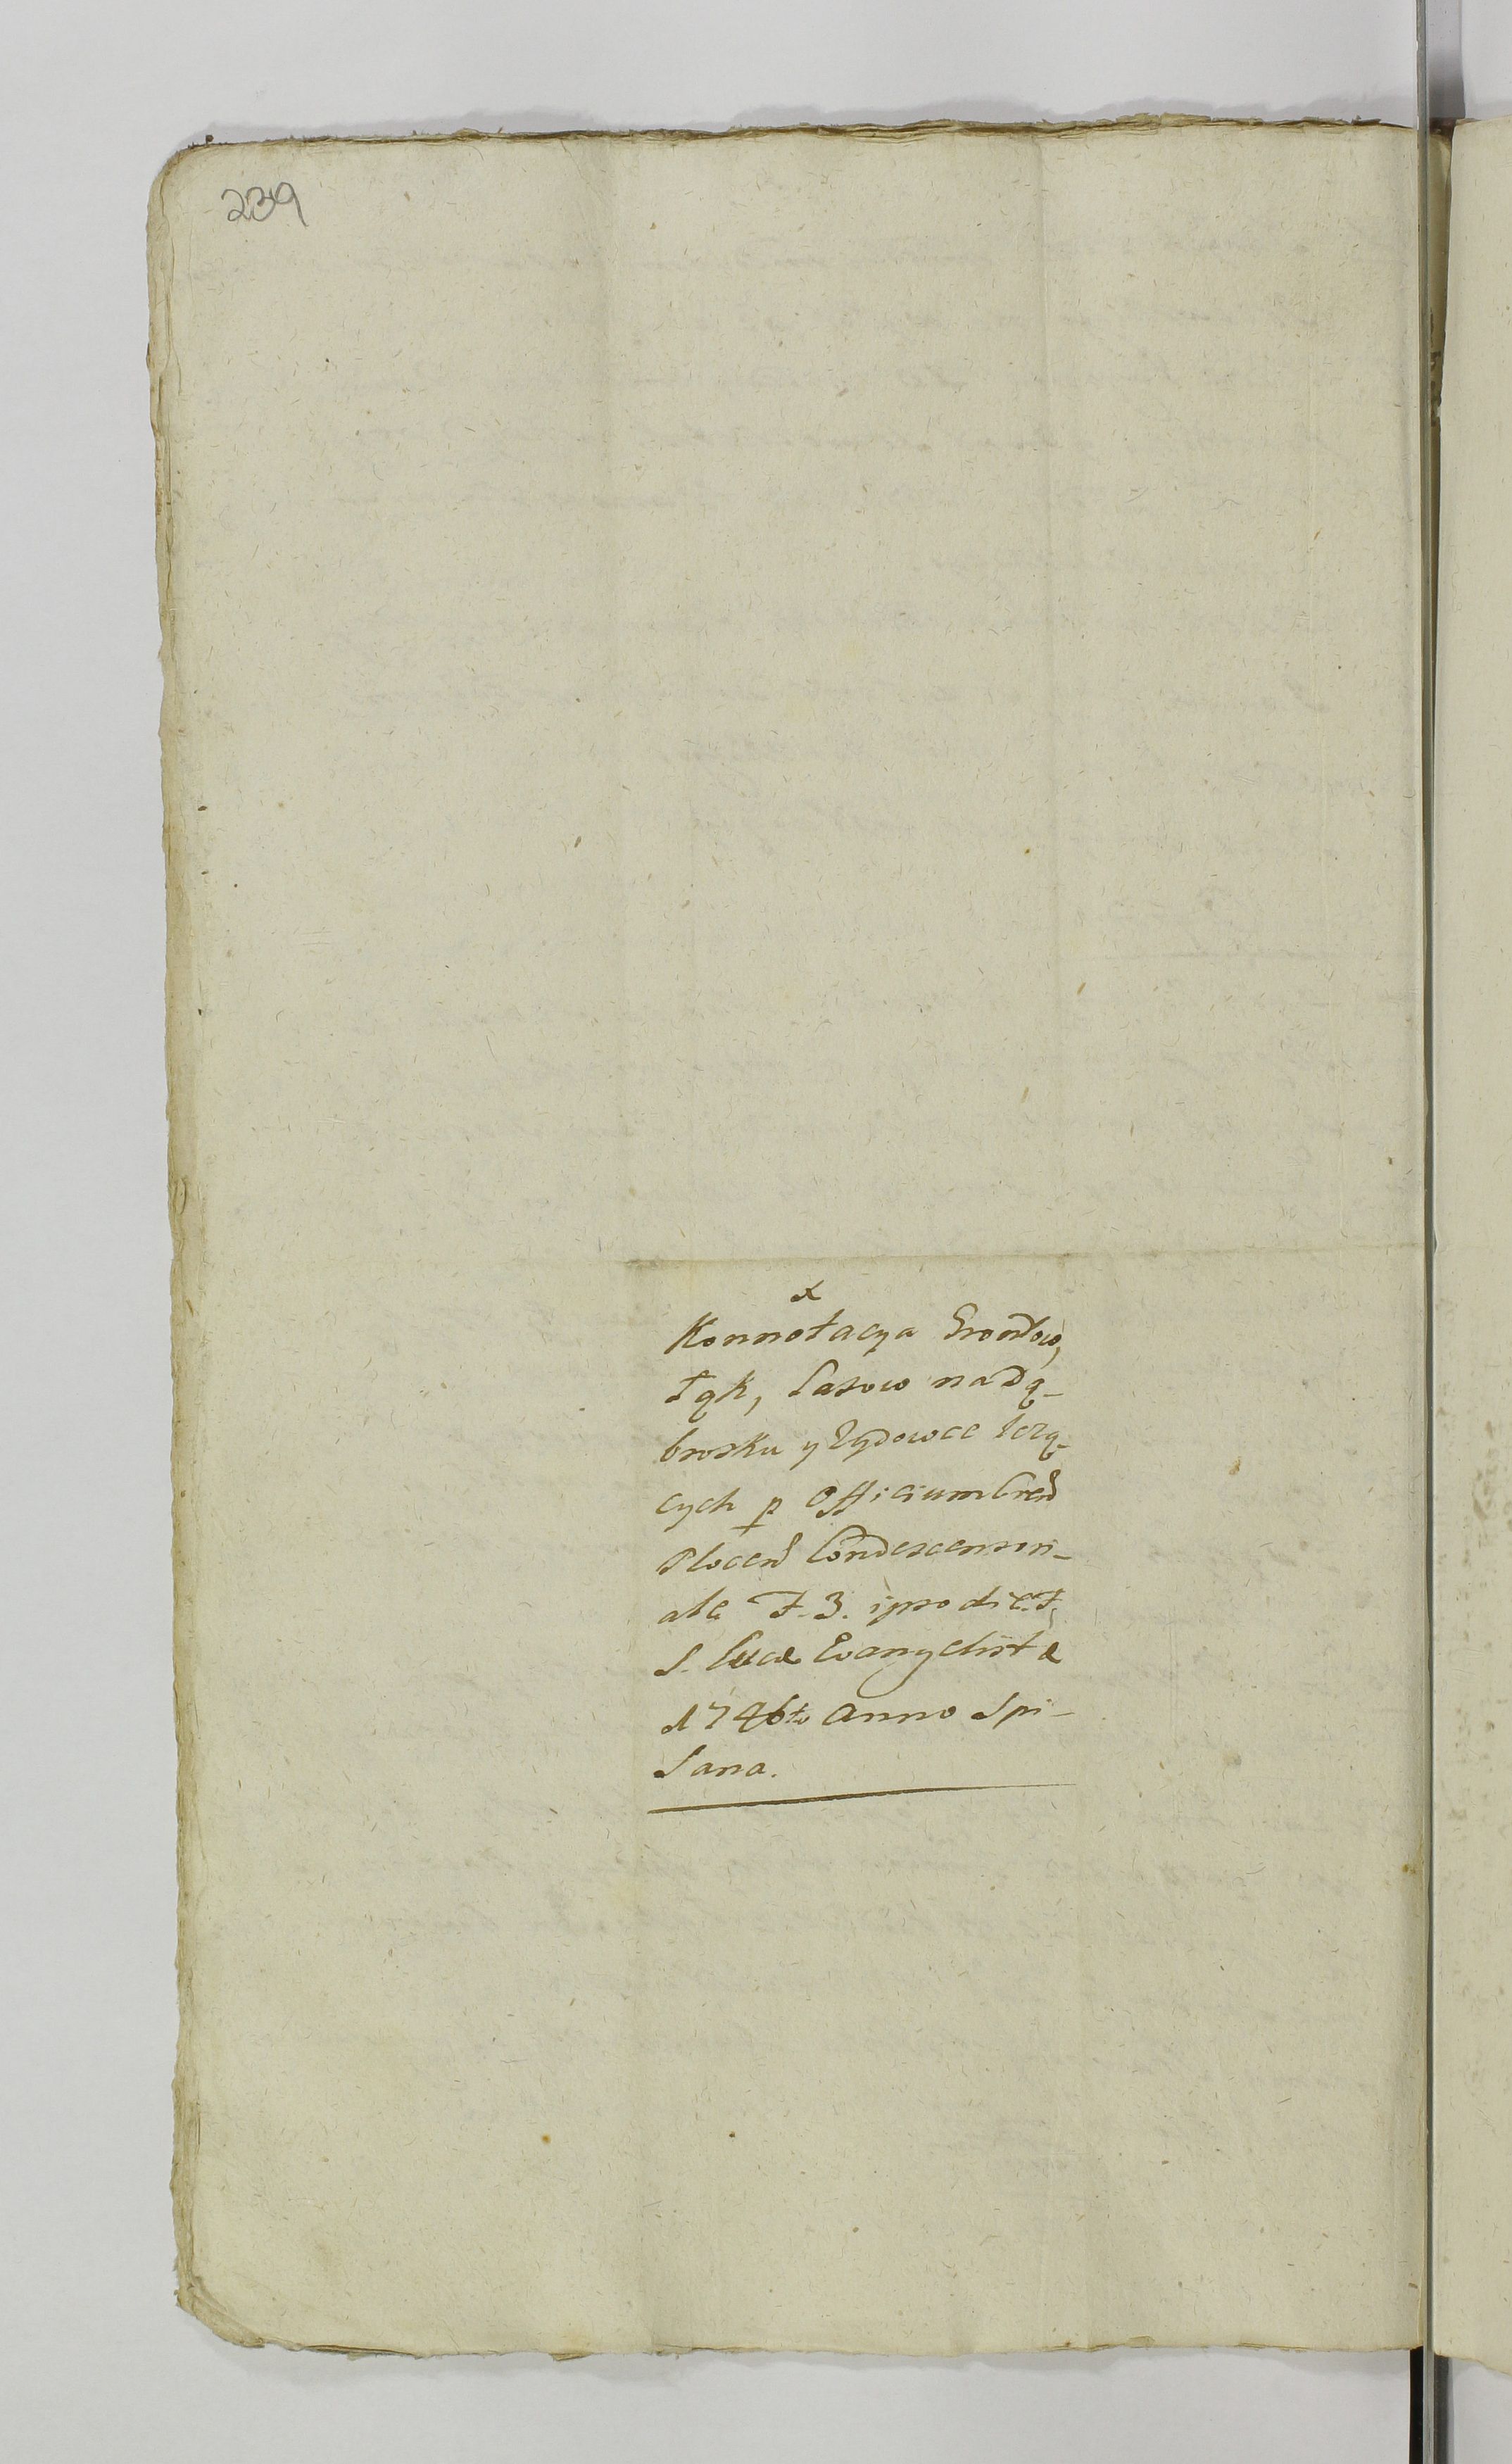 239
x
Konnotacya Grontow,
łąk, lasow na Dą-
brosku y Zydowce lezą-
cych p Officium Cred
Plocen Condescensori-
ale F. 3. ipso die
S. Lucæ Evangelistæ
1746to Anno Spi-
sana.